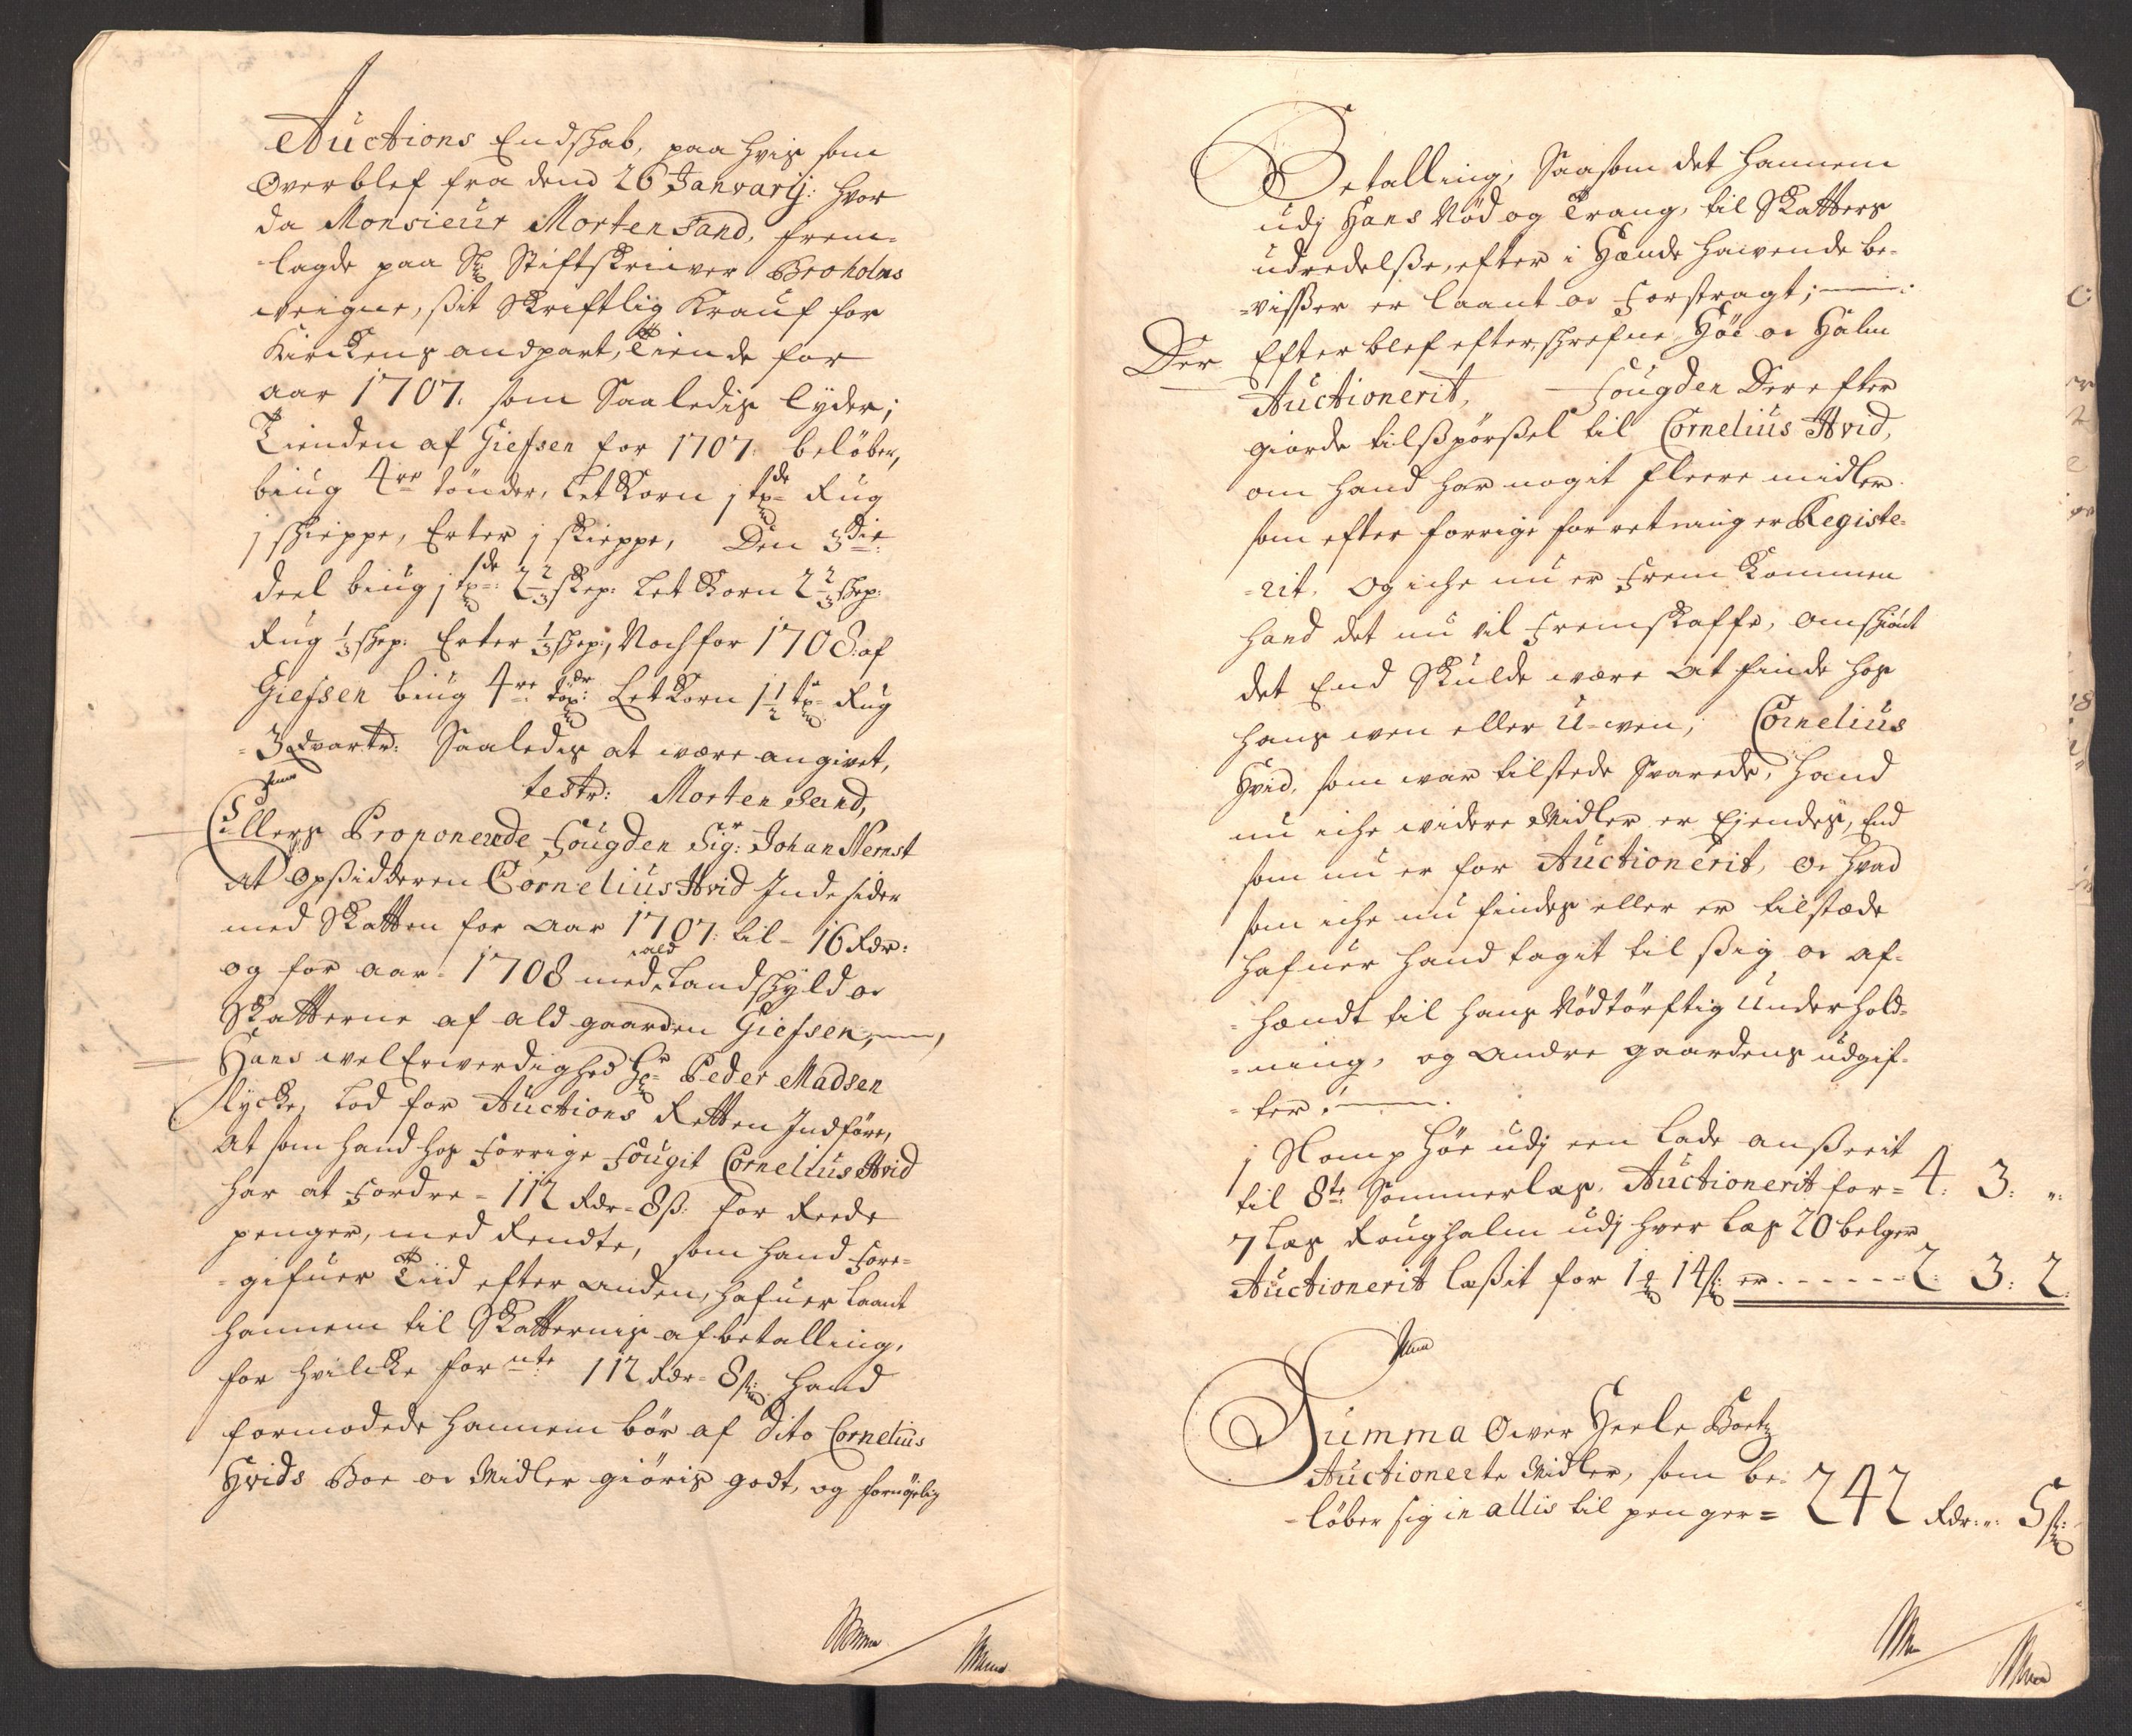 Auctions Endskab, paa hvis som
Overblef fra dend 26 Januarij: hvor
da Monsieur Morten Sand, frem-
-lagde paa Sr Stiftskriver Broholms
weigne, sit Skriftlig Krauf for
Kirckens andpart, Tiende for
aar 1707. som Saaledis lyder;
Tienden af Giefsen for 1707. beløber,
biug 4re tønder, LetKorn j tde Rug
j skieppe, Erter j skieppe, Den 3die
deel biug j tde: 2 2/3 skep: Let Korn 2 2/3 skep:
Rug 1/3 skep: Erter 1/3 skep:, Noch for 1708. af
Giefsen biug 4re tdr: LetKorn 1 1/2 t Rug
-3 Qvarter: Saaledis at være angivet,
testr: Morten Sand,
Ellers Proponerede Fougden Sigr: Johan Nernst
at Opsidderen Cornelius Hvid Indesider
med Skatten for Aar 1707: til - 16 Rdr:
og for aar - 1708 med ald Landskyld oc
Skatterne af ald gaarden Giefsen,
Hans welErwerdighed Hr Peder Madsen
lycke, lod for Auctions Retten Indføre,
at som hand hos forrige fougit Cornelius Hvid
har at fordre - 112 Rdr - 8 ß: for Reede
penger, med Rendte, som hand fore-
-gifuer Tiid efter anden, hafuer laant
hannem til Skatternis afbetalling,
for hvilcke fornte 112 Rdr - 8 ß: hand
formodede hannem bør af dito Cornelius
Hvids Boe oc Midler giøris godt, og fornøyelig
Betalling, Saasom det hannem
udj Hans Nød og Trang, til Skatters
udredelse, efter i Hænde hawende be-
-visser er laant oc forstragt;
Der Efterblef efterskrefne Høe oc Halm
Auctionerit, Fougden Derefter
giorde tilspørsel til Cornelius Hvid,
om hand har nogit fleere midler
som efter forrige forretning er Registe-
-rit, Og iche nu er fremkommen
hand det nu vil fremskaffe, omskiønt
det End Skulde være at finde hos
hans wen eller U-wen, Cornelius
Hvid, som war tilstede Svarede, hand
nu iche widere Midler er Ejendes, End
som nu er for Auctionerit, Oc hvad
som iche nu findes eller er tilstæde
hafuer hand tagit til sig oc af-
-hændt til hans Nødtørftig Underhold-
-ning, og andre gaardens udgif-
-ter.
j Stomp høe udj een lade anseeit
til 8te Sommerlas, Auctionerit for = 4: 3: ":
7 Las Roughalm udj hver las 20 belger
Auctionerit lassit for 1 14 ß: er - - - - - - 2: 3: 2.
Summa Ower Heele Boetz
Auctionerte Midler, som be-
-løber sig in allis til penger = 242 Rdr: ": 5 ß: